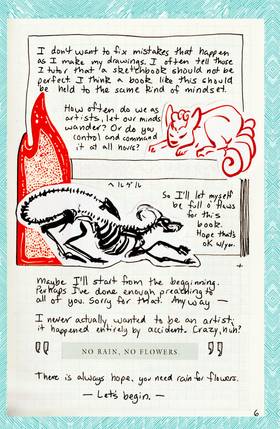 I don't want to fix mistakes that happen
as I make my drawings. I often tell those
I tutor that a sketchbook should not be
perfect. I think a book like this should
be held to the same kind of mindset.
How often do we as
artists, let our minds
wander? Or do you
control and command
it at all hours?
So I'll let myself
be full o' flaws
for this
book.
Hope thats
OK w/you.
Maybe I'll start from the beginning.
Perhaps I've done enough preaching to
all of you. Sorry for that. Anyway —
I never actually wanted to be an artist;
it happened entirely by accident. Crazy, huh?
NO RAIN, NO FLOWERS
There is always hope, you need rain for flowers.
— Let's begin. —
6